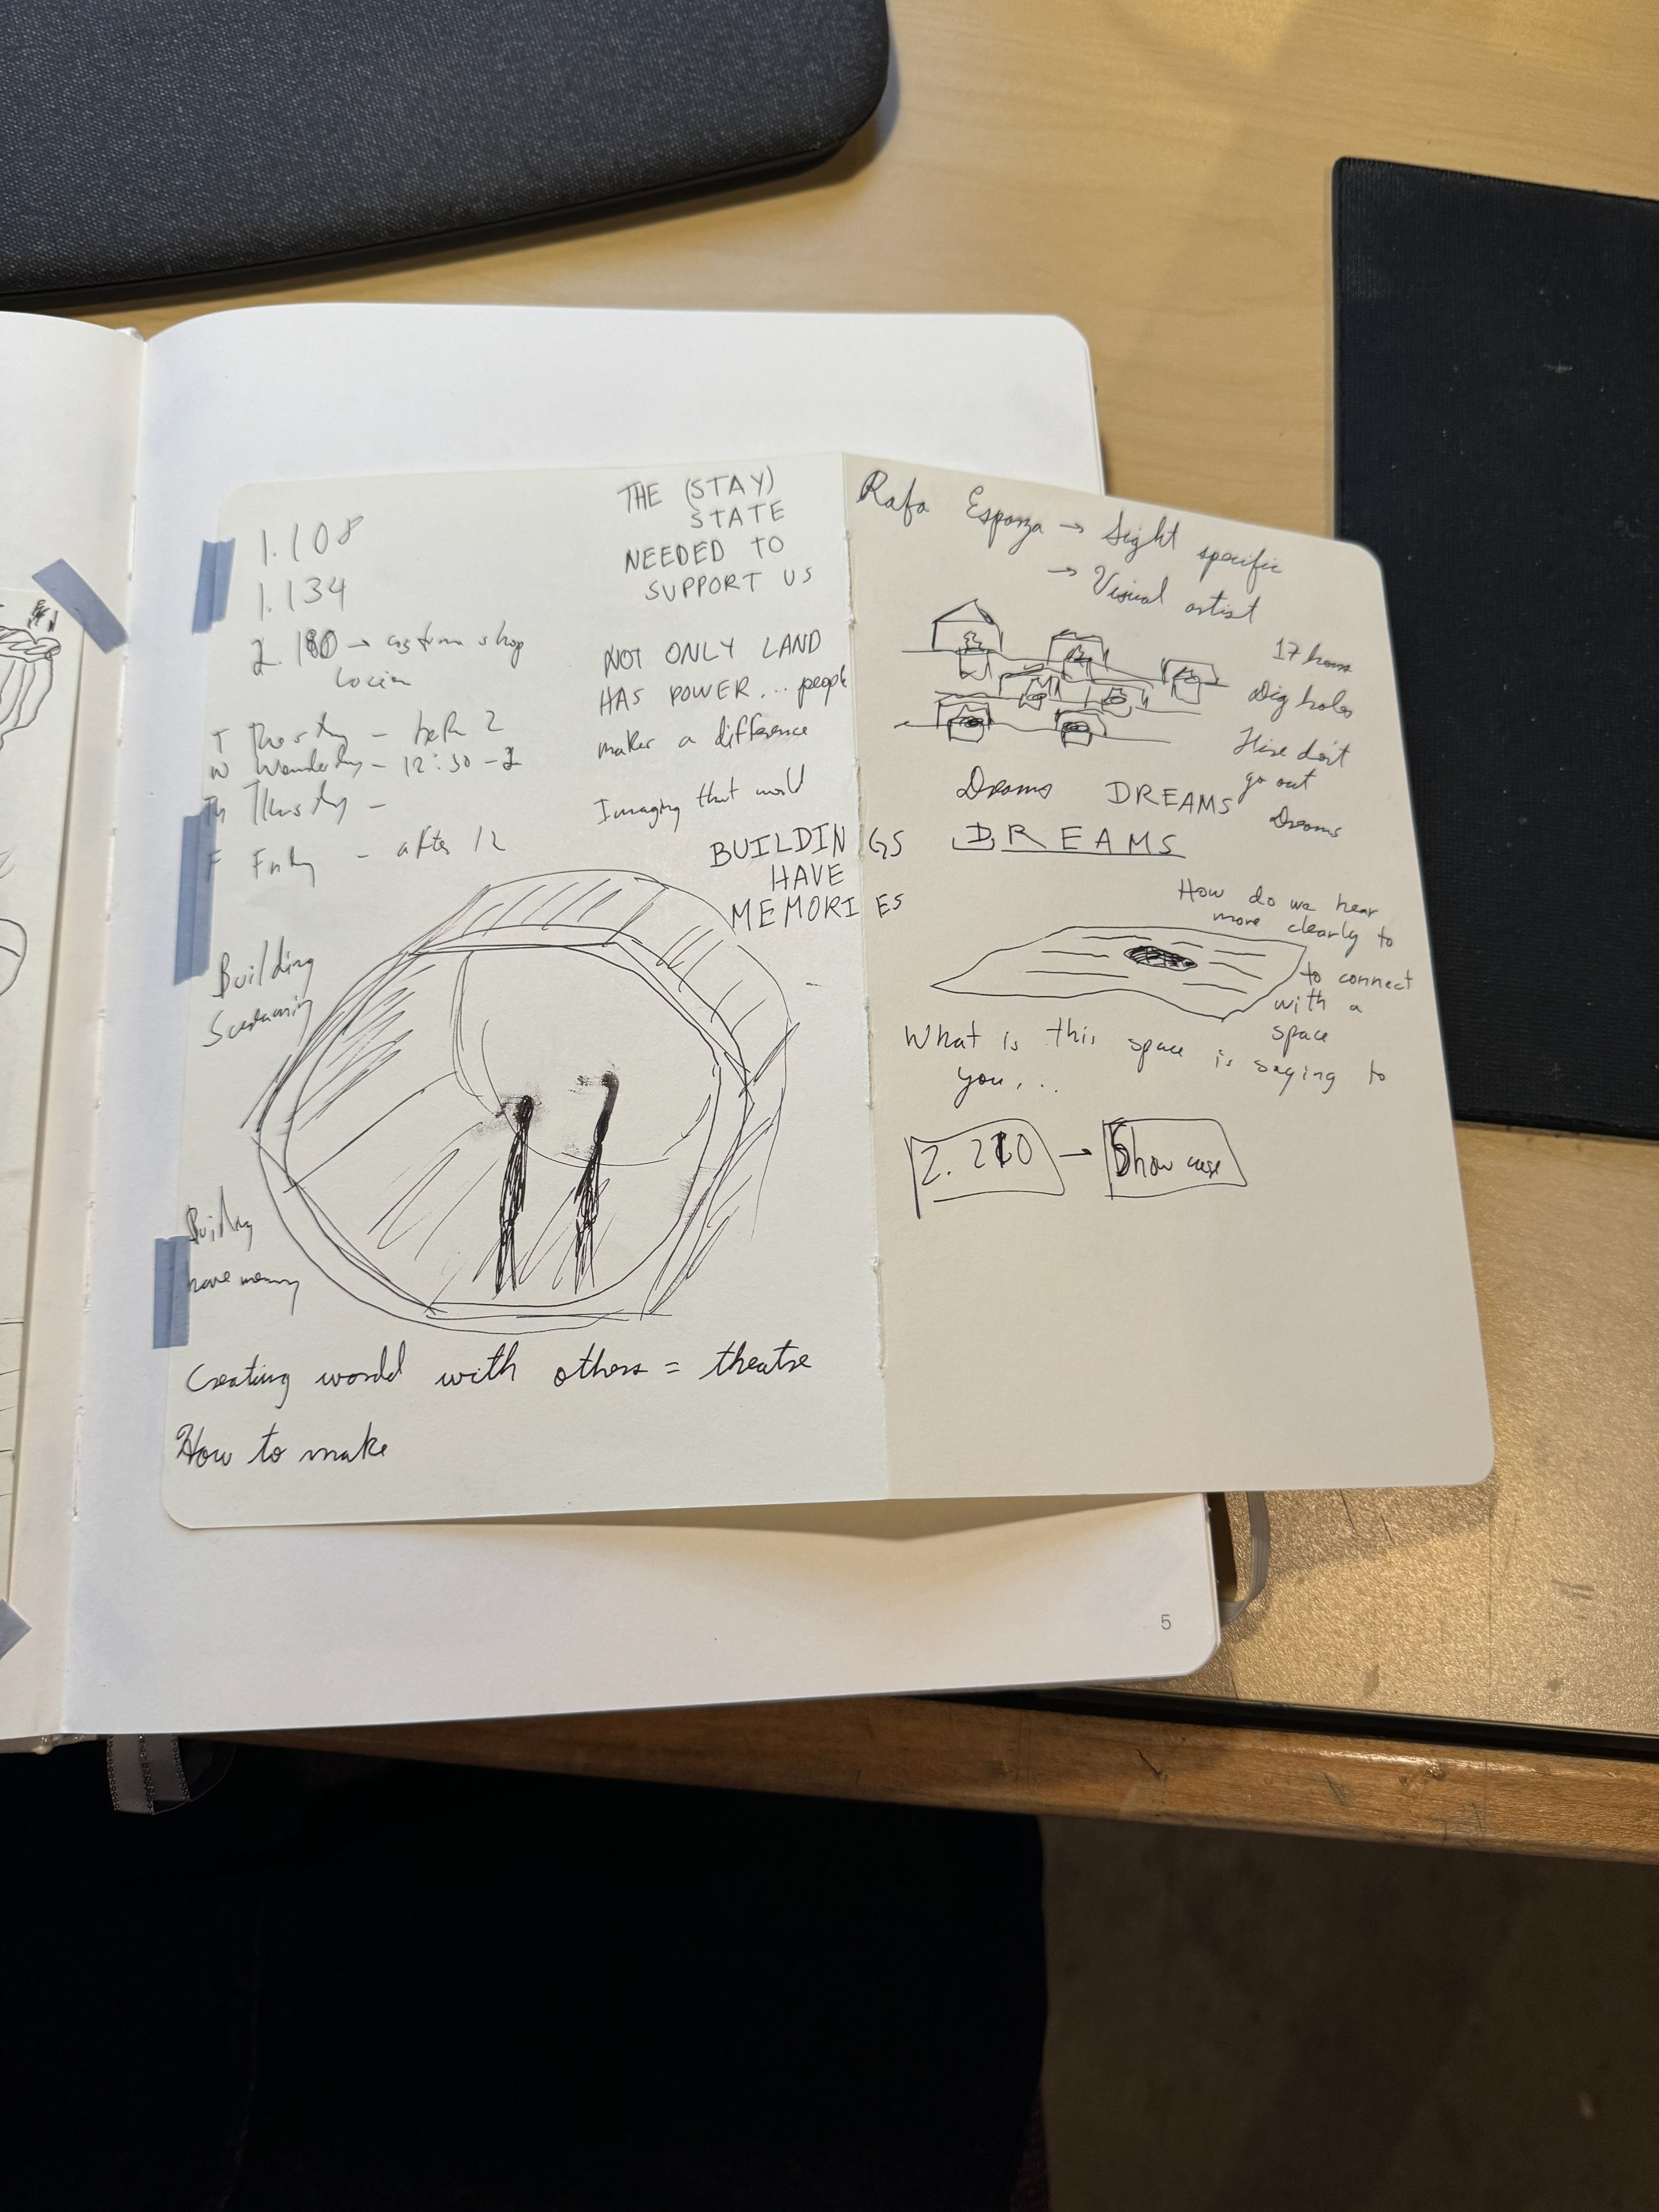 1.108
1.134
2.180 → costum shop
T - before 2
W - 12:30 - 2
Th Thursday -
F Friday - after 12
THE (STAY)
STATE
NEEDED TO
SUPPORT US
NOT ONLY LAND
HAS POWER... people
makes a difference
Imaging that world
BUILDINGS
HAVE
MEMORIES
Building
Screaming
Building
have memory
Creating world with others = theatre
How to make
Rafa Esparza → Sight specific
→ Visual artist
17 hours
Dig holes
don't
go out
Dreams DREAMS Dreams
DREAMS
How do we hear
more clearly to
to connect
with a
space
What is this space is saying to
you...
2.210 → Show case
5